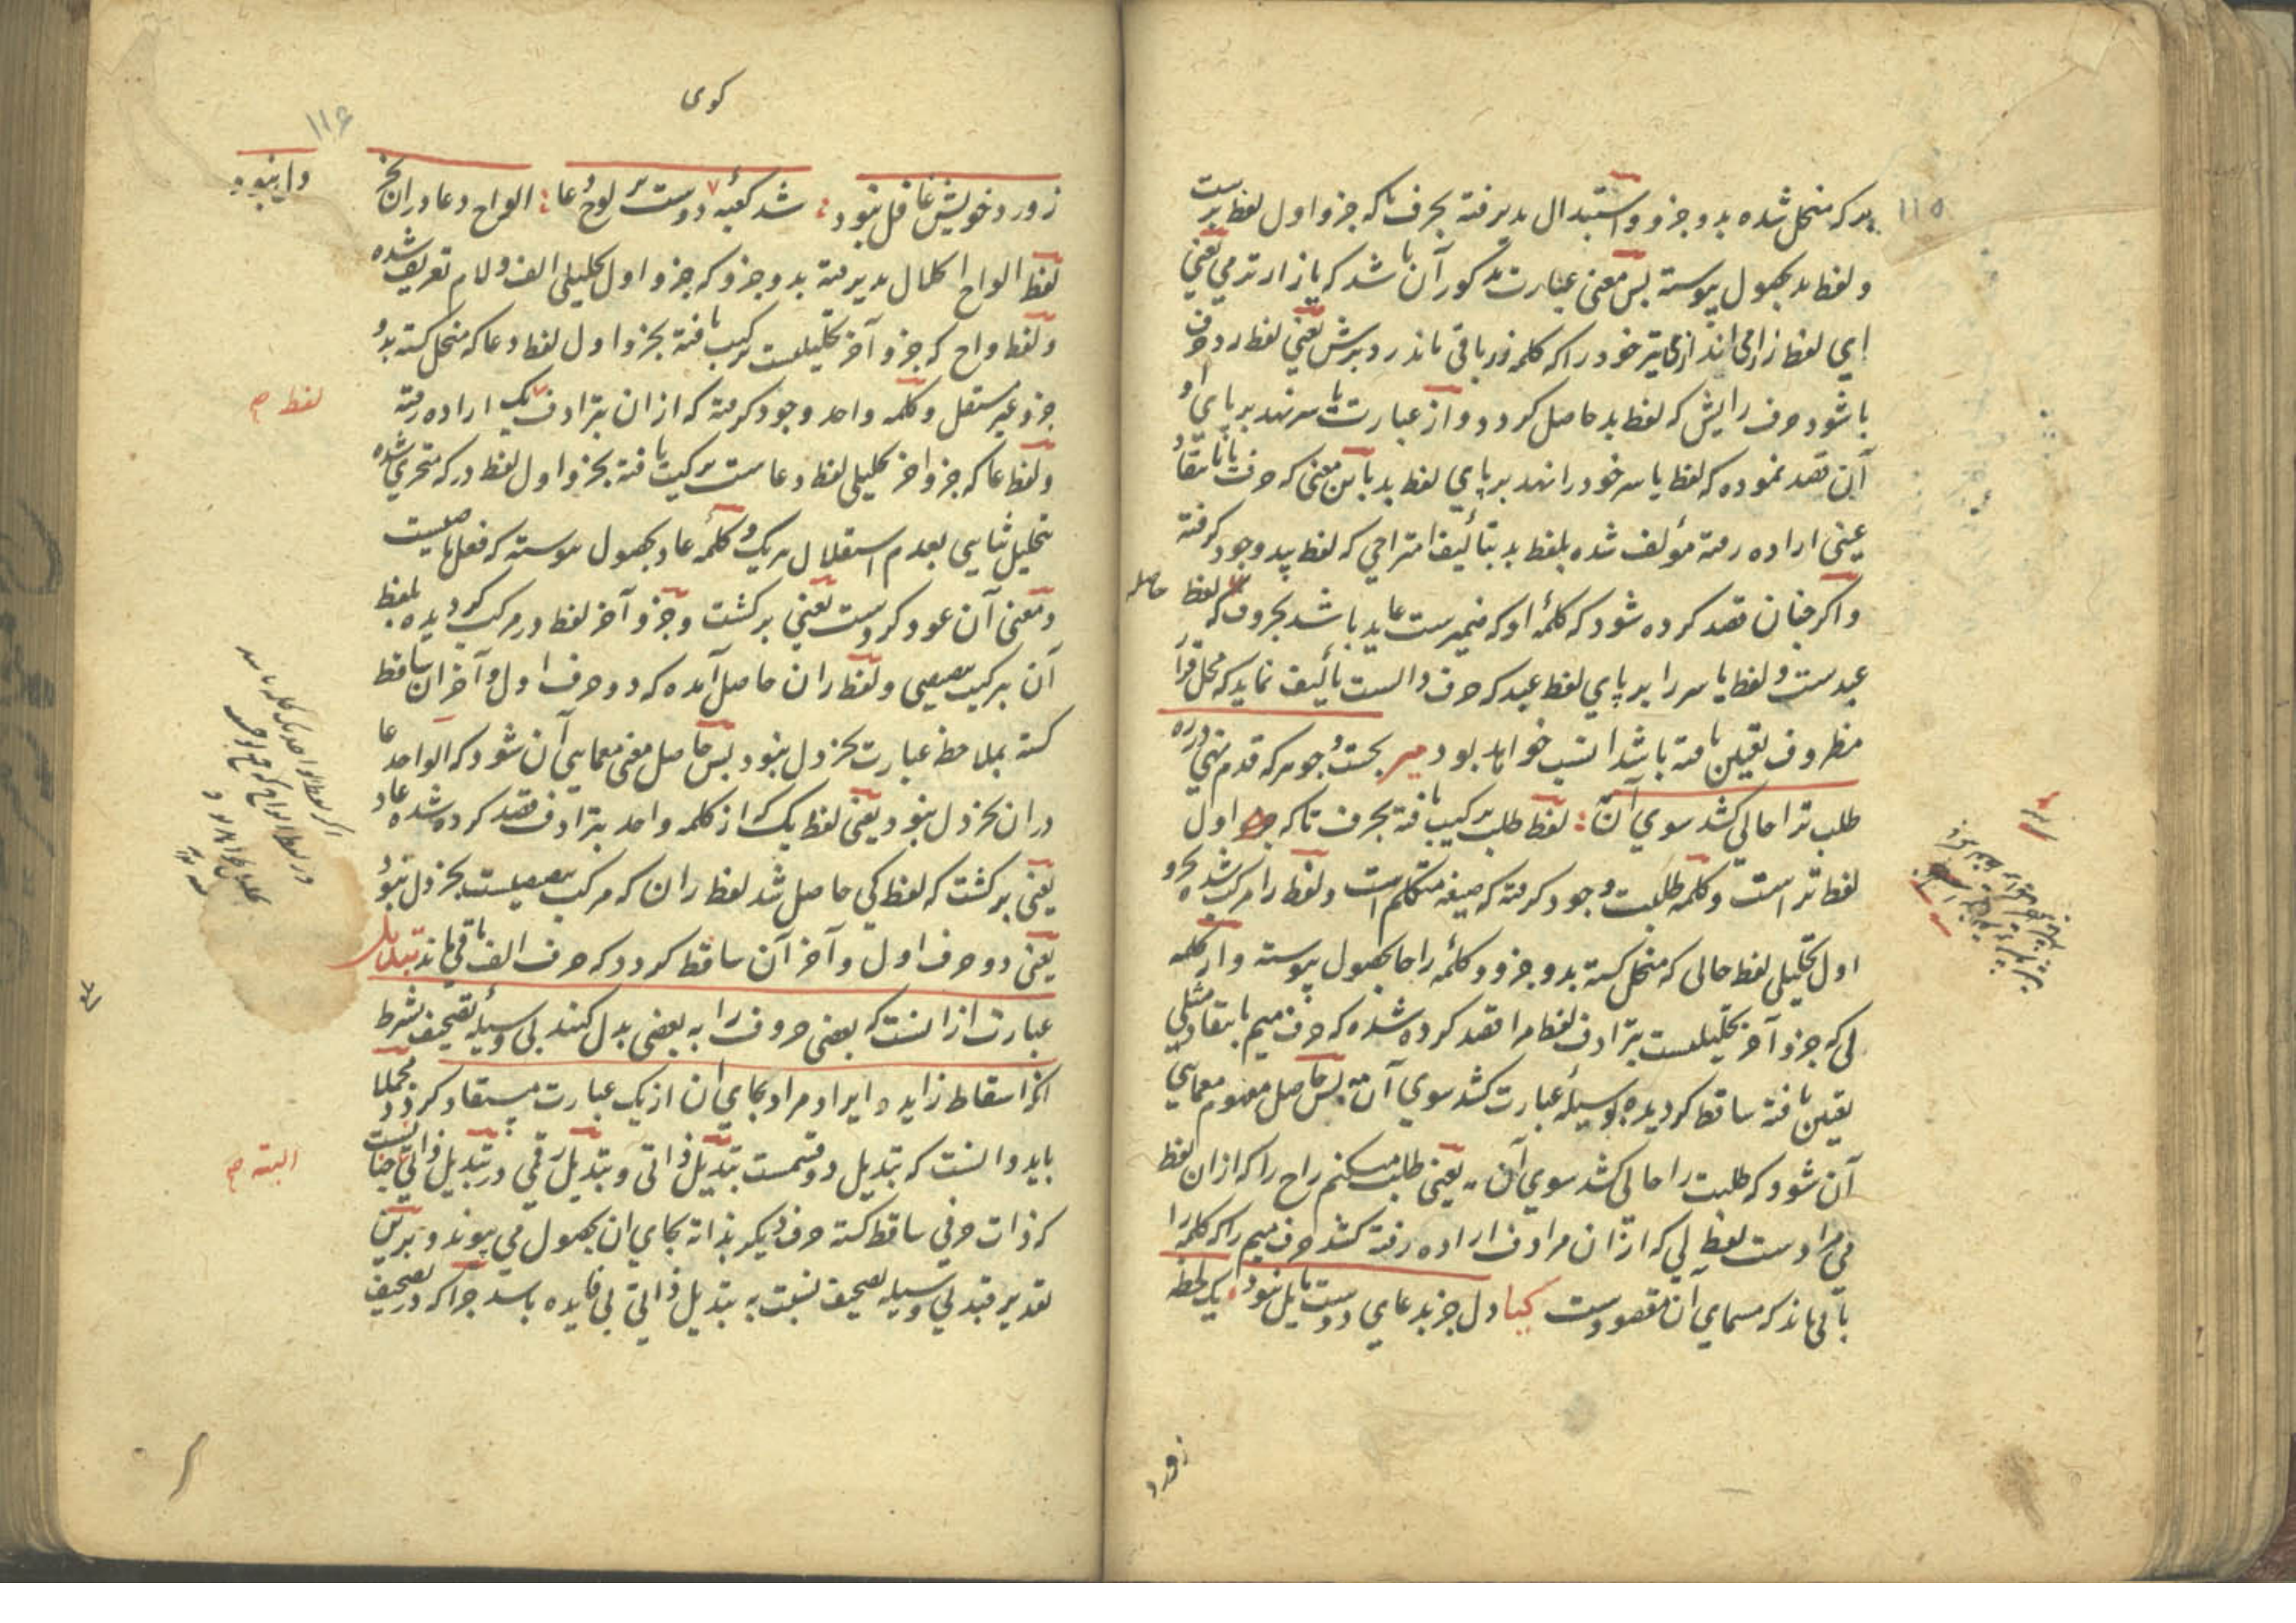 ۱۱۵
بد که منحل شده بدو جزو و استبدال پذیرفته بحرف تا که جزو اول لفظ
و لفظ بد بحصول پیوسته پس معنی عبارت مذکور آن باشد که باز ار ترمی یعنی
ای لفظ زارمی اند از می تیر خود را که کلمه باقی ماند در برش یعنی لفظ رد حرف
باشود حرف رایش که لفظ بد حاصل کردد و از عبارت تا سر نهد بر پای او
آن قصد نموده که لفظ یا سر خود را نهد بر پای لفظ بد باین معنی که حرف یا بانتقاد
عینی اراده رفته مؤلف شده بلفظ بد بتألیف امتزاجی که لفظ پید وجود کرفته
و اکر چنان قصد کرده شود که کلمهٔ او که ضمیرست عاید باشد بحروف که لفظ
حاصله
عبدست و لفظ یا سر را بر پای لفظ عبد که حرف دالست تألیف نماید که محل قرار
مظروف تعیین یافته باشد انسب خواهد بود میر بجست و جو هرکه قدم نهی در ره
طلب ترا حالی کشد سوی آن : لفظ طلب ترکیب یافته بحرف تا که جزو اول
لفظ تراست و کلمه طلبت وجود کرفته که صیغه متکلم است و لفظ را مرکب شده بجزو
اول تحلیلی لفظ حالی که منحل کشته بدو جزو و کلمهٔ راحا بحصول پیوسته و از کلمه
لی که جزو آخر تحلیلیست بترادف لفظ مرا قصد کرده شده که حرف میم بانتقاد مثلی
تعیین یافته ساقط کردیده بوسیلهٔ عبارت کشد سوی آن پس حاصل مفهوم معمایی
آن شود که طلبت راحا لی کشد سوی آن یعنی طلب میکنم راح را که ازان لفظ
می مرادست لفظ لی که ازان مرادف اراده رفته کشد حرف میم را که کلمه را
باقی ماند که مسمای آن مقصودست کیا دل جز بدعای دوست مایل نبود یک لحظه
ز ورد
کوی
۱۱۶
ز ورد خویش غافل نبود : شد کعبهٔ دوست بر لوح دعا : الواح دعا دران بجز
دل نبود
لفظ الواح انحلال پذیرفته بدو جزو که جزو اول تحلیلی الف و لام تعریف شده
و لفظ واح که جزو آخر تحلیلیست ترکیب یافته بجزو اول لفظ دعا که منحل کشته بدو
جزو غیر مستقل و کلمه واحد وجود کرفته که ازان بترادف یک اراده رفته
لفظ صح
و لفظ عا که جزو آخر تحلیلی لفظ دعاست ترکیب یافته بجزو اول لفظ در که متجزی شده
تحلیل ثنایی بعدم استقلال هریک و کلمهٔ عاد بحصول پیوسته که فعل ماضیست
و معنی آن عود کردست یعنی برکشت و جزو آخر لفظ در مرکب کردیده بلفظ
آن ترکیب وصفی و لفظ ران حاصل آمده که دو حرف اول و آخر ان ساقط
کشته بملاحظه عبارت بجز دل نبود پس حاصل معنی معمایی آن شود که الواحد عا
دران بجز دل نبود یعنی لفظ یک از کلمه واحد بترادف قصد کرده شده عاد
یعنی برکشت که لفظ کی حاصل شد لفظ ران که مرکب وصفیست بجز دل نبود
یعنی دو حرف اول و آخر آن ساقط کردد که حرف الف باقی ماند تبدیل
عبارت از انست که بعضی حروف را به بعضی بدل کنند بی وسیلهٔ تصحیف بشرط
انکه اسقاط زایده و ایراد مراد بجای ان از یک عبارت مستفاد کردد مجملا
باید دانست که تبدیل دو قسمست تبدیل ذاتی و تبدیل رقمی و در تبدیل ذاتی چنانست
البته صح
که ذات حرفی ساقط کشته حرف دیکر بذاته بجای ان بحصول می پیوند و برین
تقدیر قید بی وسیله تصحیف نسبت به تبدیل ذاتی بی فایده باشد چرا که در تصحیف